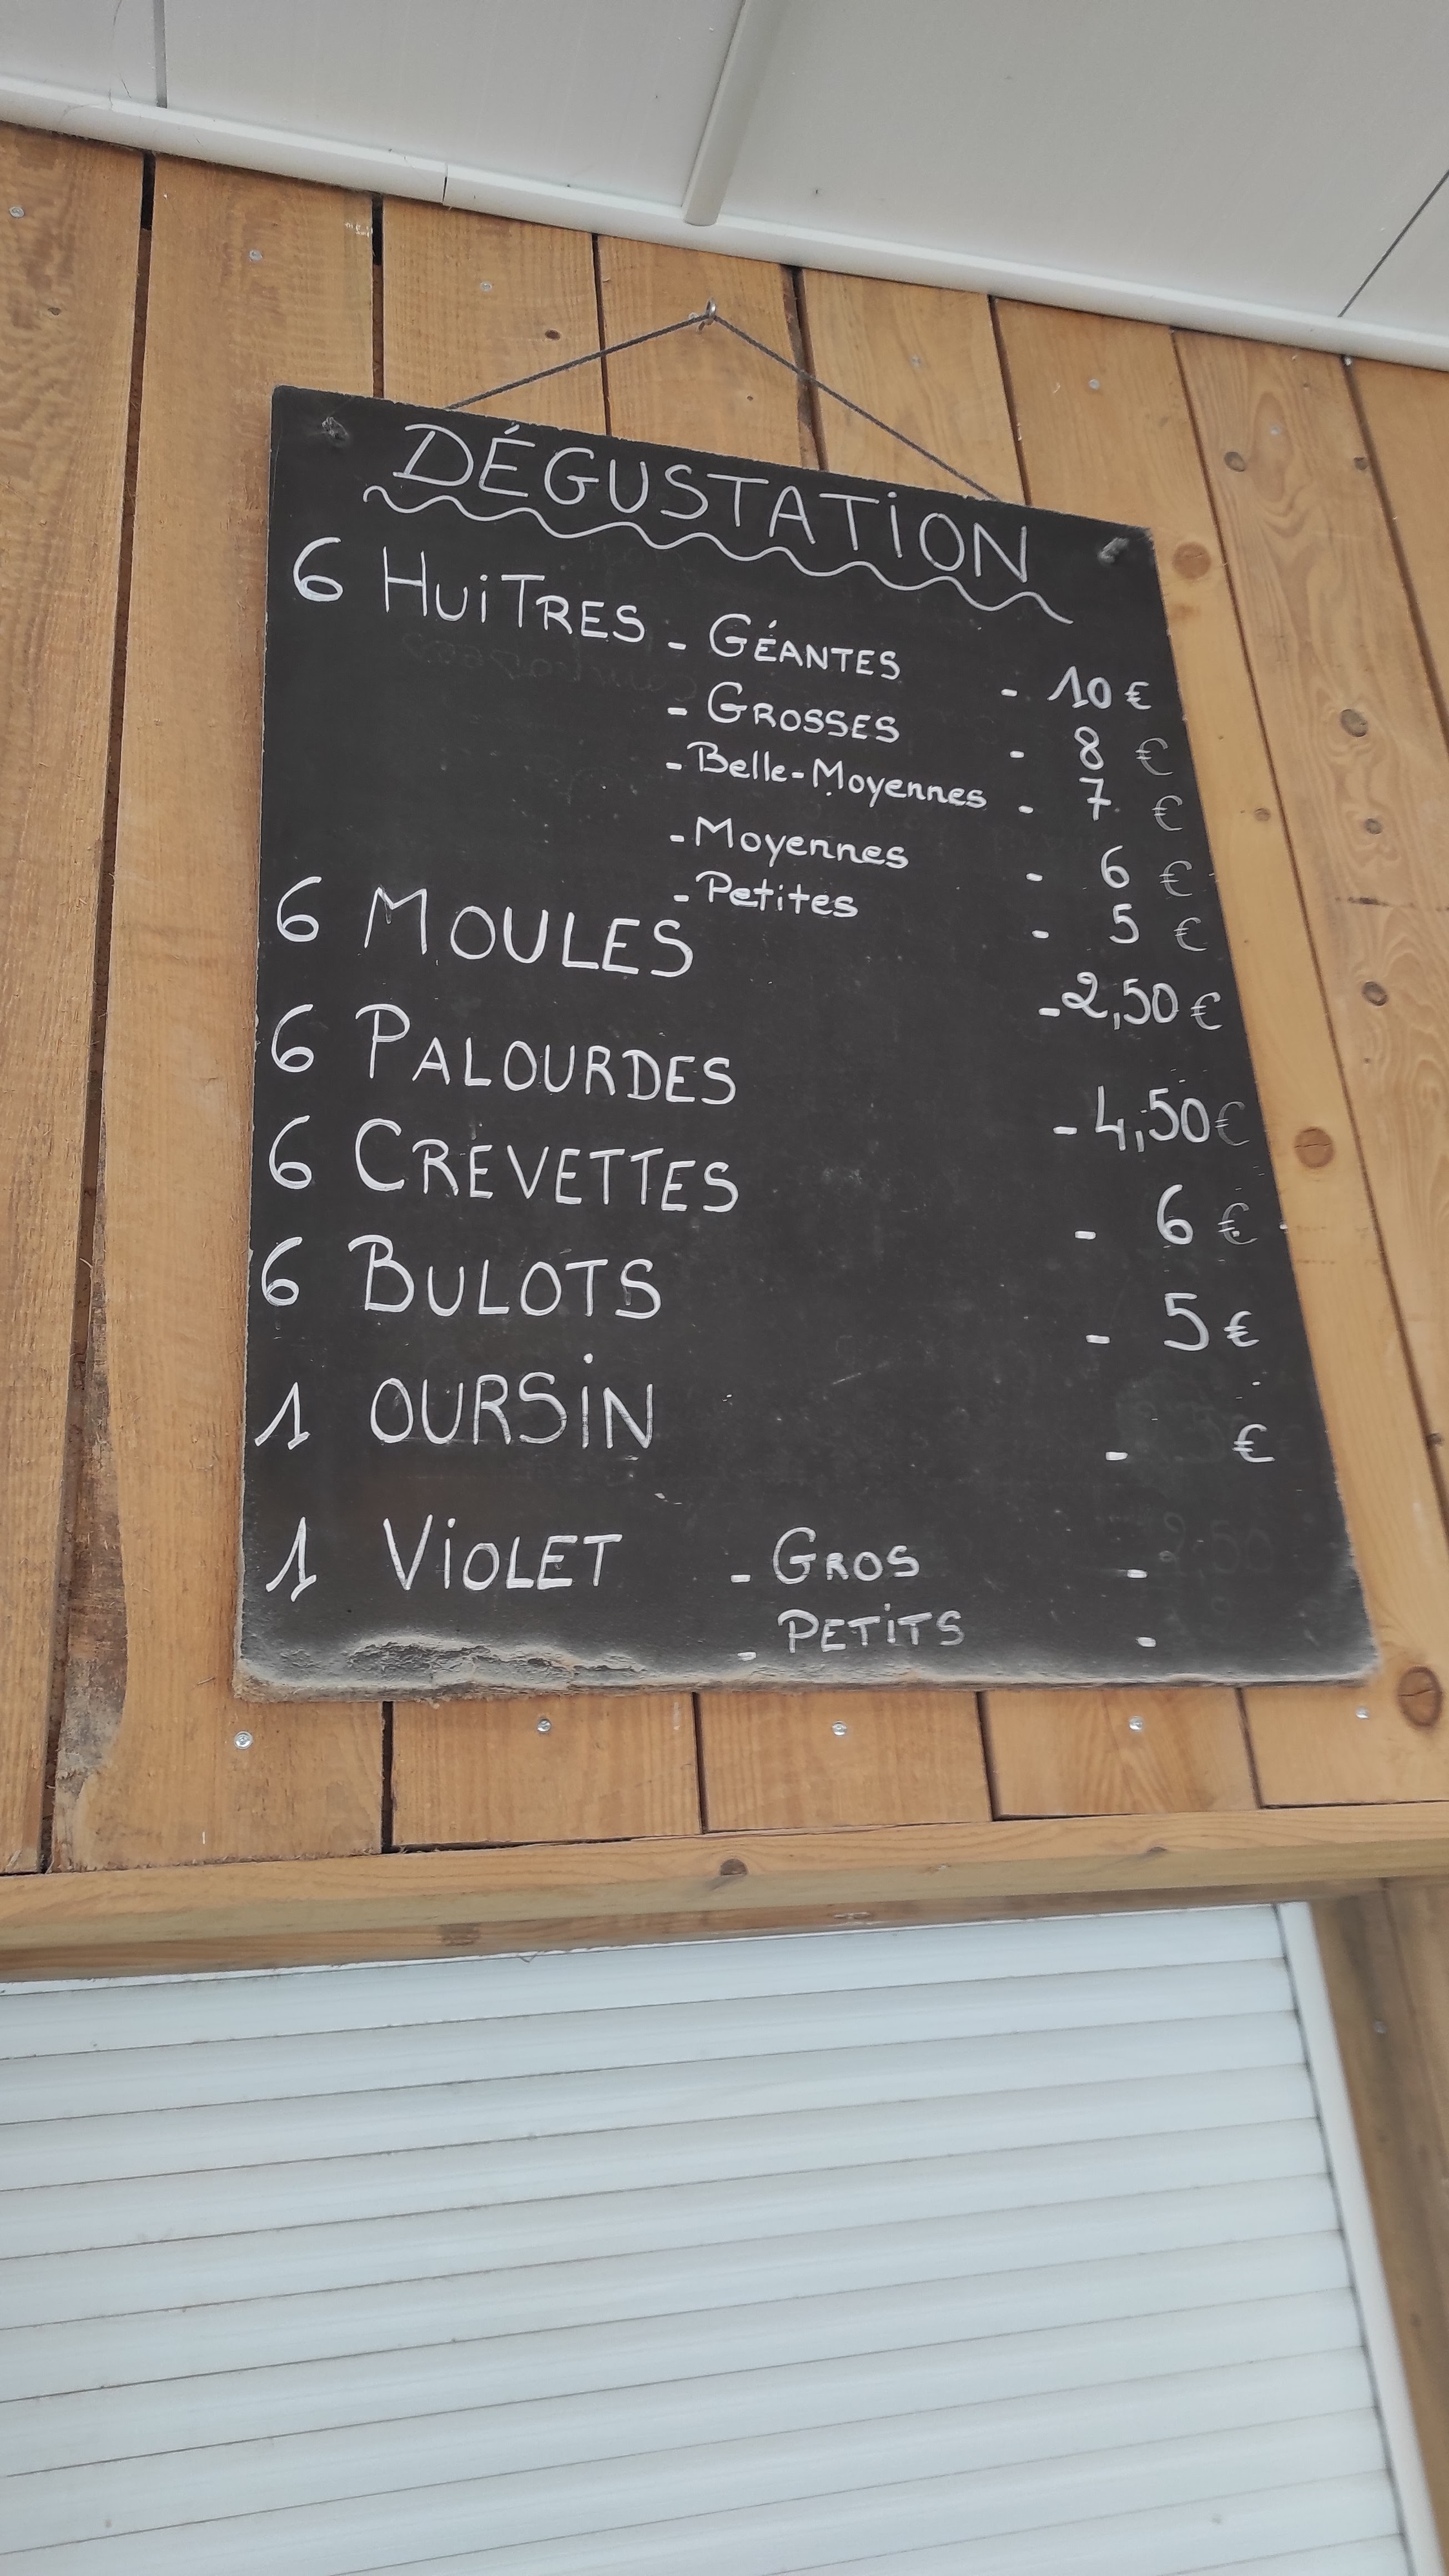 DÉGUSTATiON
6 HUiTRES - GÉANTES - 10 €
- GROSSES - 8 €
- Belle-Moyennes - 7 €
- Moyennes - 6 €
- Petites - 5 €
6 MOULES - 2,50 €
6 PALOURDES - 4,50 €
6 CREVETTES - 6 €
6 BULOTS - 5 €
1 OURSiN - €
1 ViOLET - GROS -
- PETiTS -